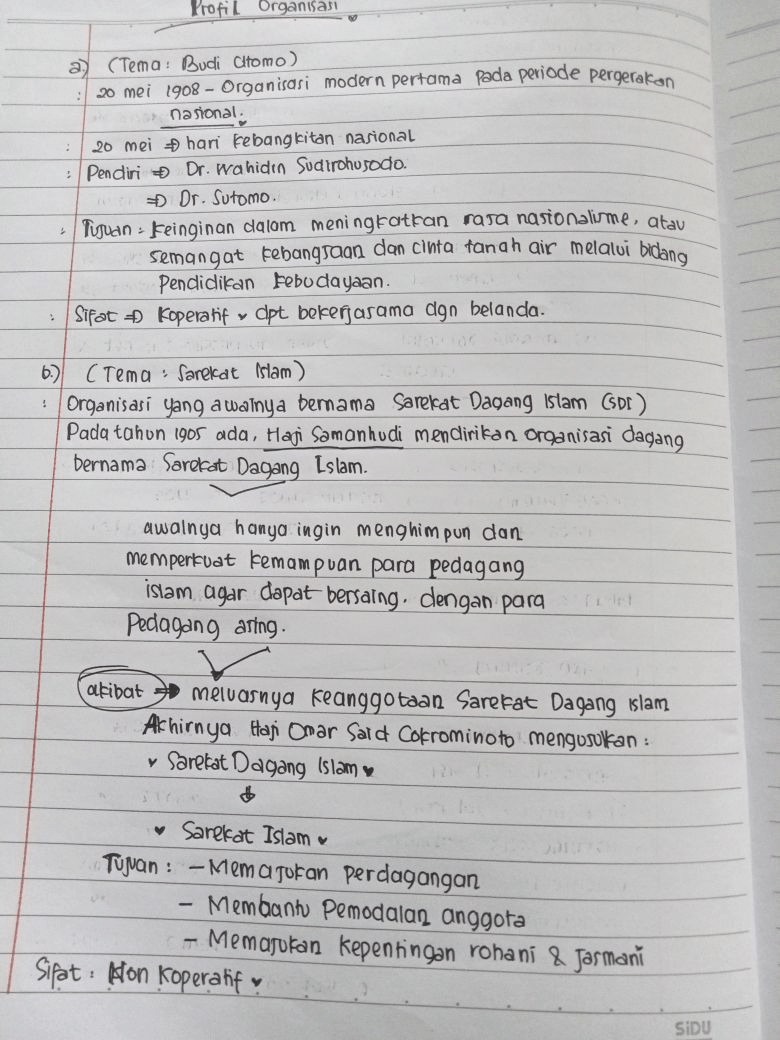 Profil Organisasi
a) (Tema: Budi Utomo)
: 20 mei 1908 - Organisasi modern pertama pada periode pergerakan
nasional.
: 20 mei ⇒ hari kebangkitan nasional
: Pendiri ⇒ Dr. Wahidin Sudirohusodo.
⇒ Dr. Sutomo.
: Tujuan : keinginan dalam meningkatkan rasa nasionalisme, atau
semangat kebangsaan dan cinta tanah air melalui bidang
Pendidikan kebudayaan.
: Sifat ⇒ Koperatif ♥ dpt bekerjasama dgn belanda.
b.) (Tema : Sarekat Islam)
: Organisasi yang awalnya bernama Sarekat Dagang Islam (SDI)
Pada tahun 1905 ada, Haji Samanhudi mendirikan organisasi dagang
bernama Sarekat Dagang Islam.
awalnya hanya ingin menghimpun dan
memperkuat kemampuan para pedagang
islam agar dapat bersaing. dengan para
Pedagang asing.
akibat ⇒ meluasnya Keanggotaan Sarekat Dagang Islam
Akhirnya Haji Omar Said Cokrominoto mengusulkan :
♥ Sarekat Dagang Islam ♥
↓
♥ Sarekat Islam ♥
Tujuan : - Memajukan perdagangan
- Membantu Pemodalan anggota
- Memajukan kepentingan rohani & Jasmani
Sifat : Non Koperatif ♥
SiDU